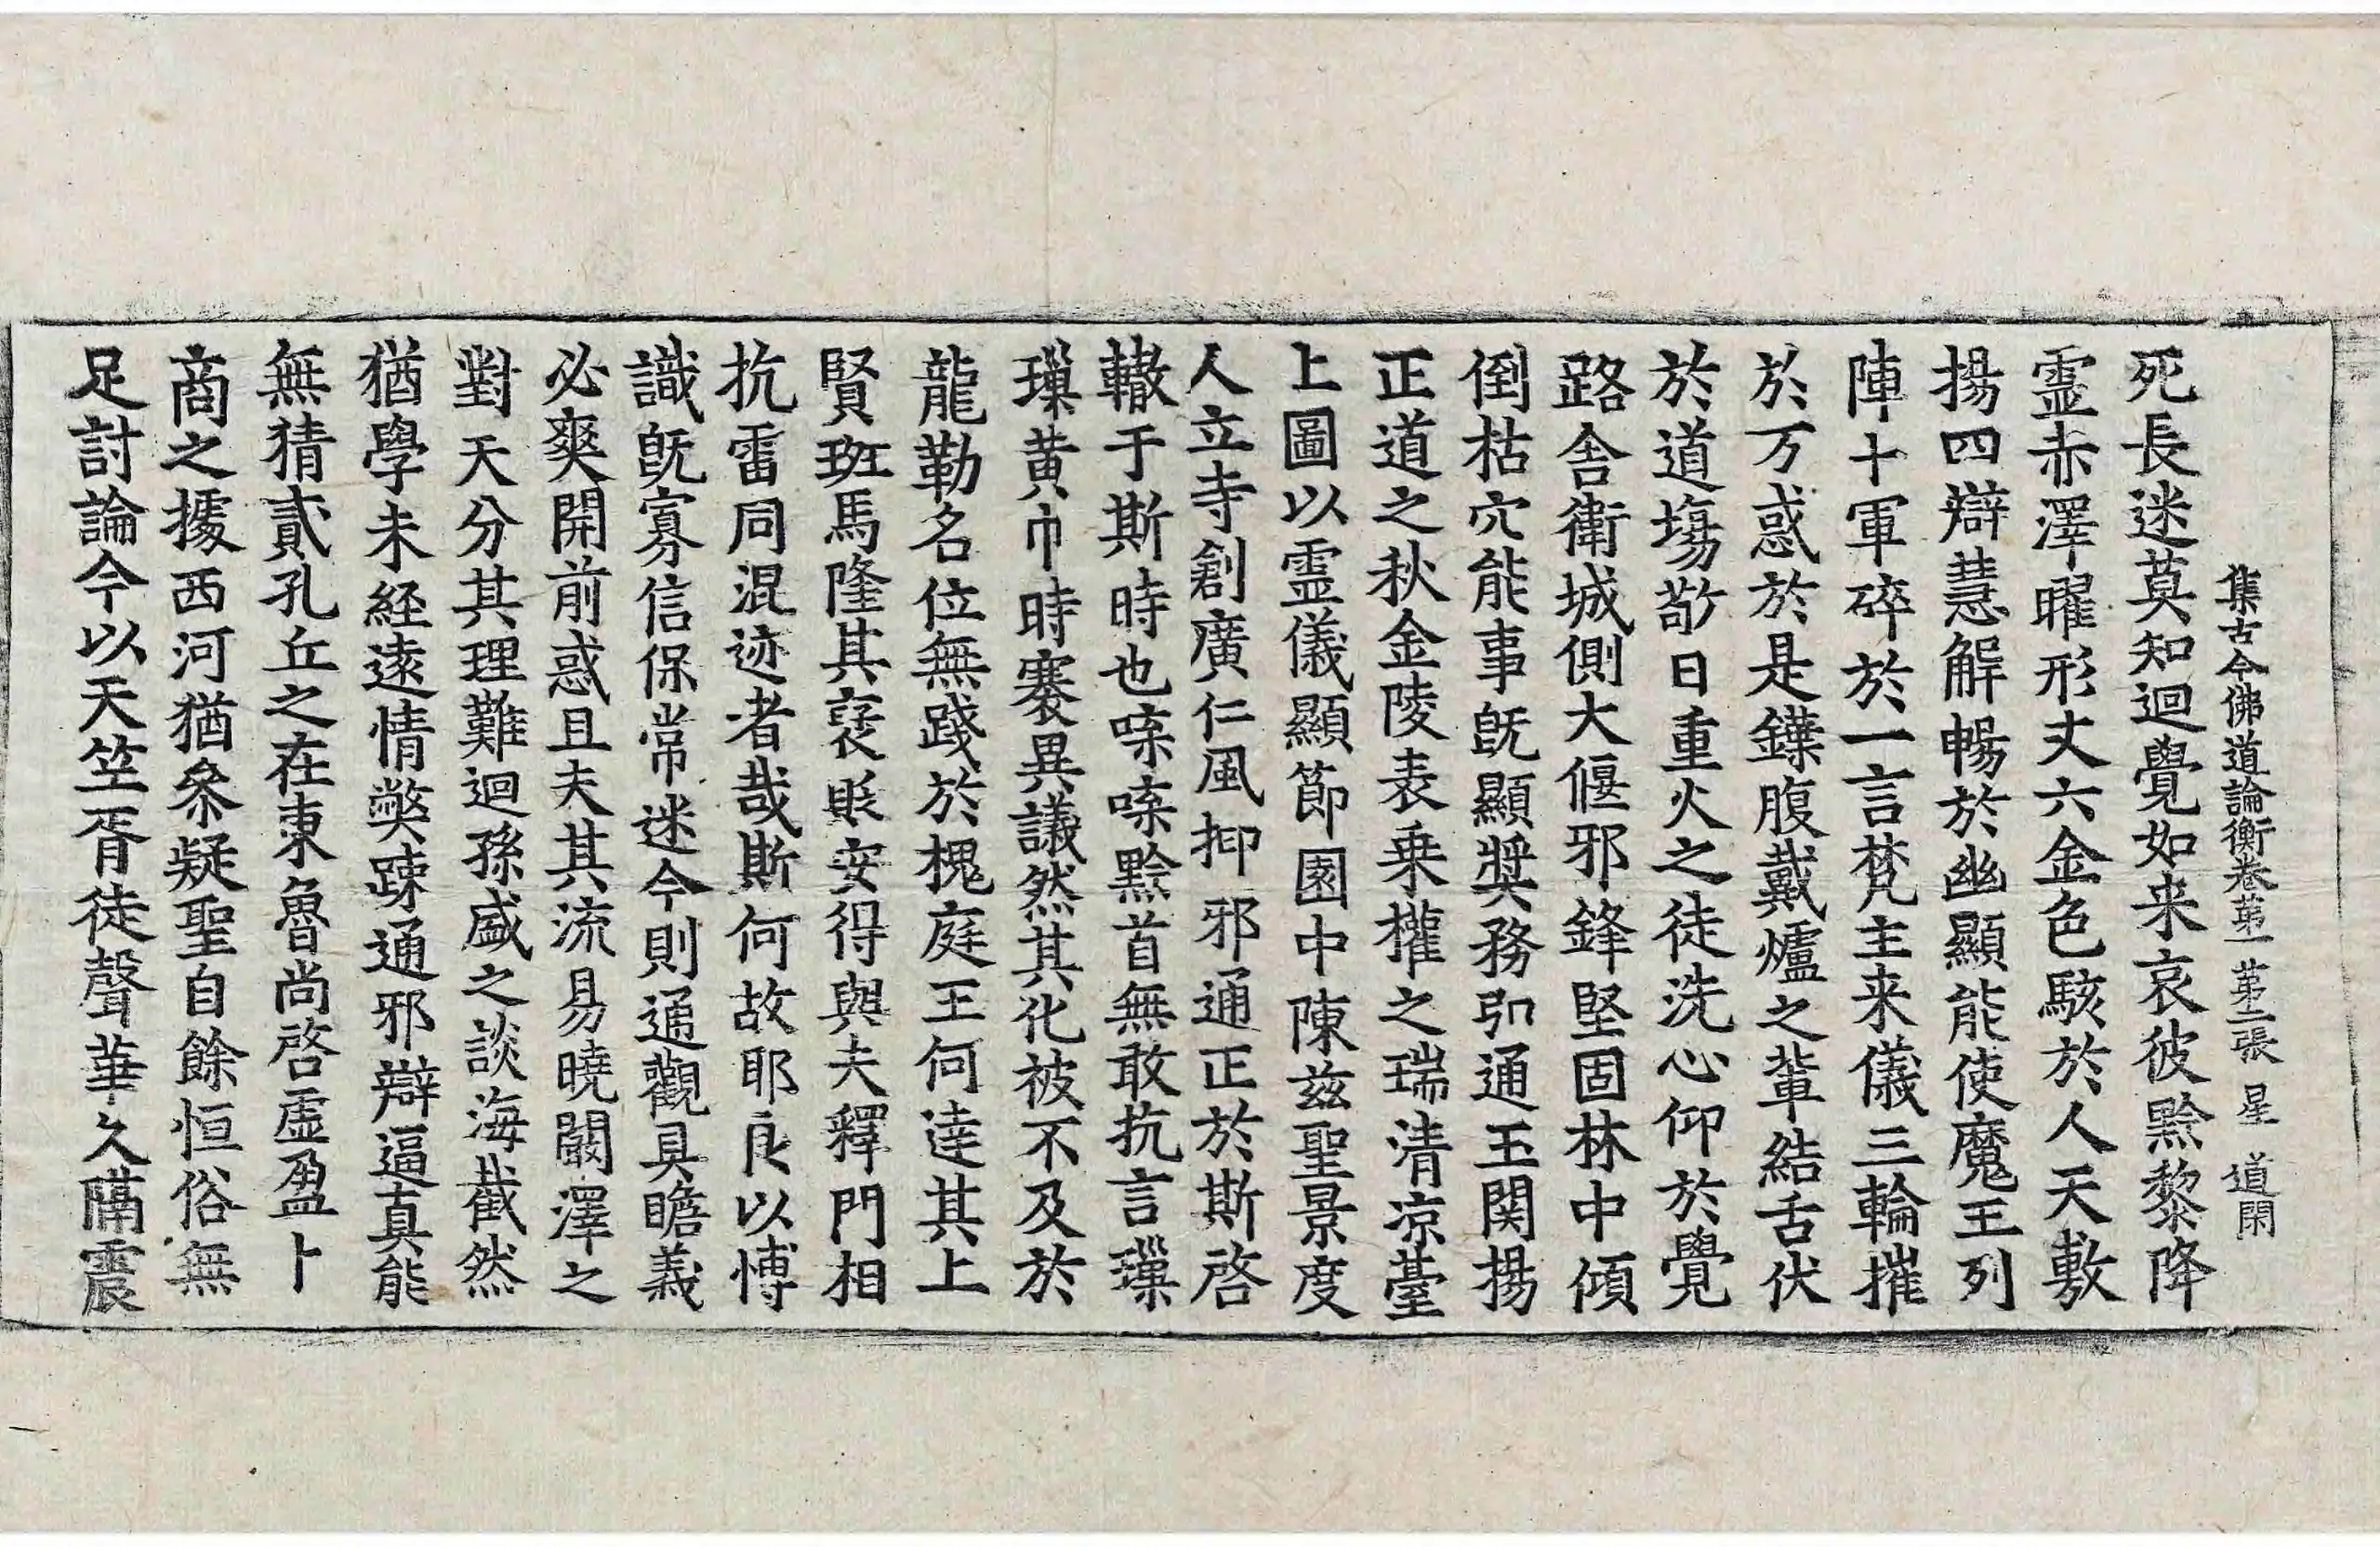 集古今佛道論衡卷第一 第二張 星 道閑
死長迷莫知迴覺如来哀彼黔黎降
霊赤澤曜形丈六金色駭於人天敷
揚四辯慧解暢於幽顯能使魔王列
陣十軍碎於一言梵主来儀三輪摧
於万惑於是鍱腹戴爐之輩結舌伏
於道塲敬日重火之徒洗心仰於覺
路舎衛城側大偃邪鋒堅固林中傾
倒枯穴能事旣顯奬務弘通玉関揚
正道之秋金陵表乗權之瑞清凉臺
上圖以霊儀顯節園中陳兹聖景度
人立寺創廣仁風抑邪通正於斯啓
轍于斯時也喍喍黔首無敢抗言瑮
瑮黄巾時褰異議然其化被不及於
龍勒名位無踐於槐庭王何達其上
賢班馬隆其褒貶安得與夫釋門相
抗雷同混迹者哉斯何故耶良以博
識旣寡信保常迷今則通觀具瞻義
必爽開前惑且夫其流易曉闞澤之
對天分其理難迴孫盛之談海截然
猶學未經遠情弊踈通邪辯逼真能
無猜貳孔丘之在東魯尚啓虚盈卜
商之據西河猶叅疑聖自餘恒俗無
足討論今以天笠胥徒聲華久隔震